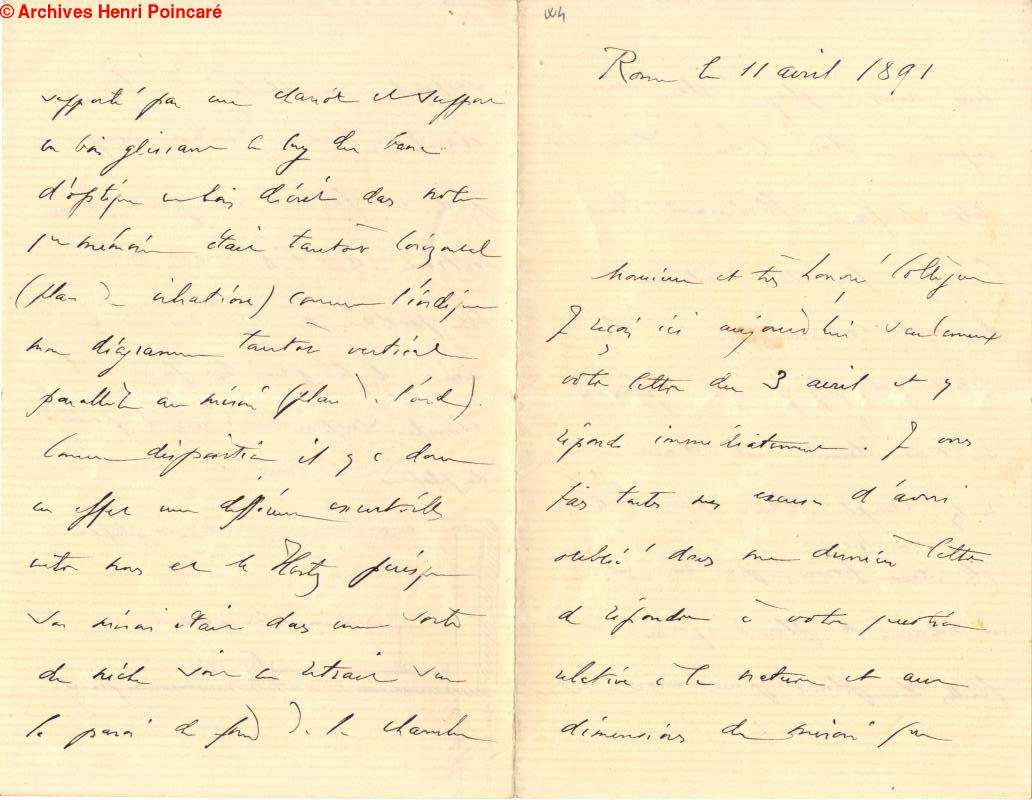 © Archives Henri Poincaré
Rome le 11 avril 1891
Monsieur et très honoré Collègue
Je reçois ici aujourd'hui seulement
votre lettre du 3 avril et y
réponds immédiatement. Je vous
fais toutes mes excuses d'avoir
oublié dans ma dernière lettre
de répondre à votre question
relative à la nature et aux
dimensions du miroir
supporté par une et support
en bois glissant le long du banc
d'optique en bois décrit dans notre
1er mémoire était tantôt horizontal
(plan de vibration) comme l'indique
mon diagramme tantôt vertical
parallèle au miroir (plan de l'onde).
Comme disposition il y a donc
en effet une différence essentielle
entre nous et le Hertz puisque
son miroir était dans une sorte
de niche voir en retrait sur
la paroi de fond de la chambre